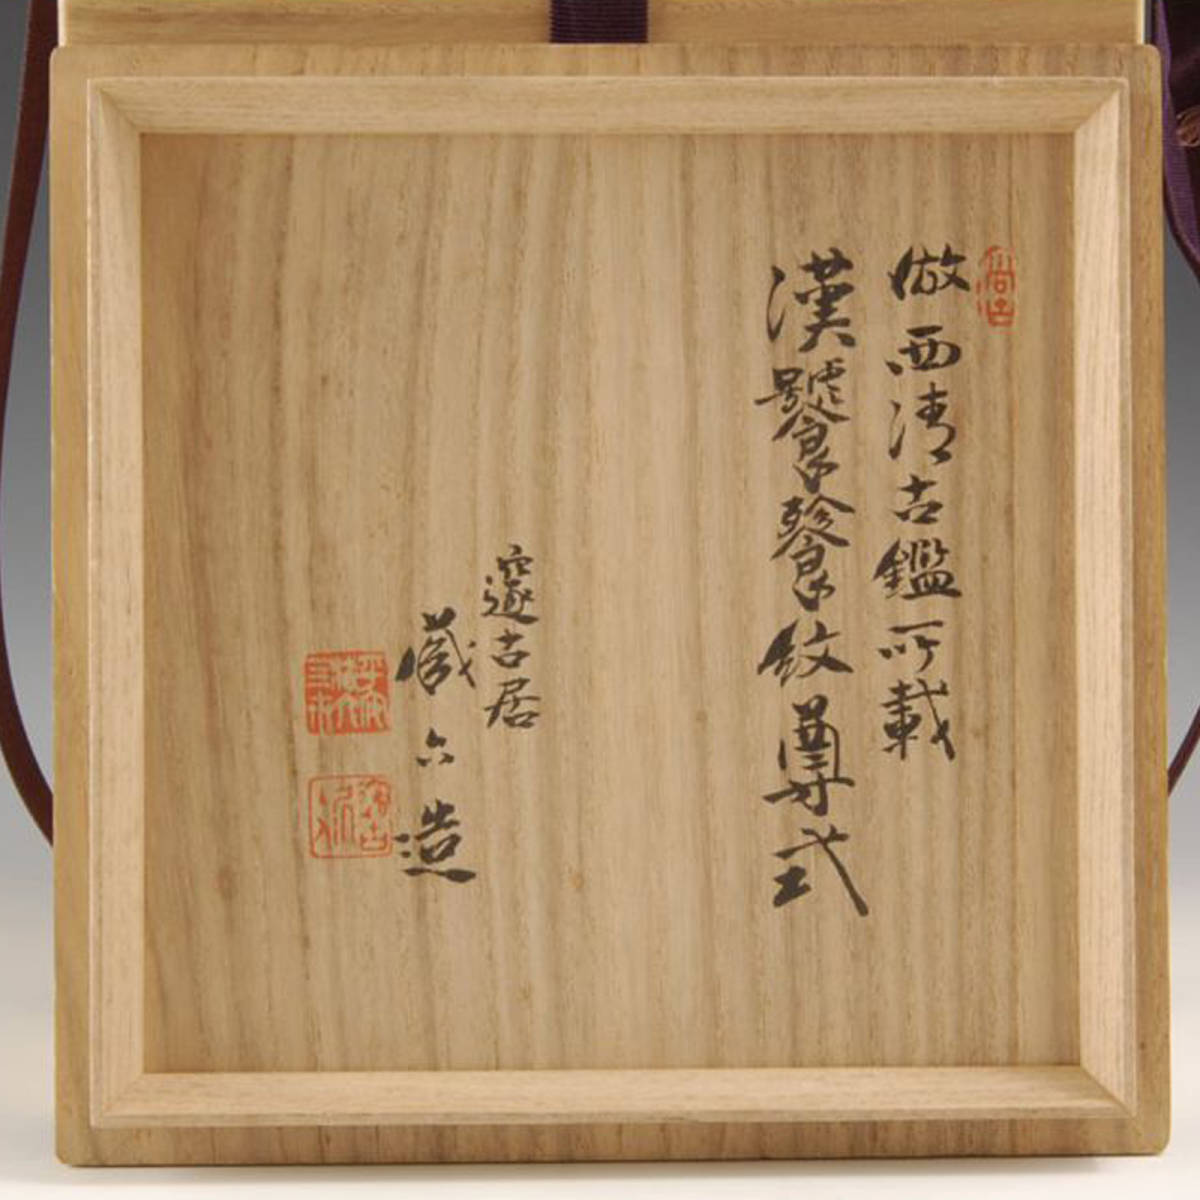 尚古
倣西清古鑑所載
漢饕餮紋尊式
邃古居
蔵六造